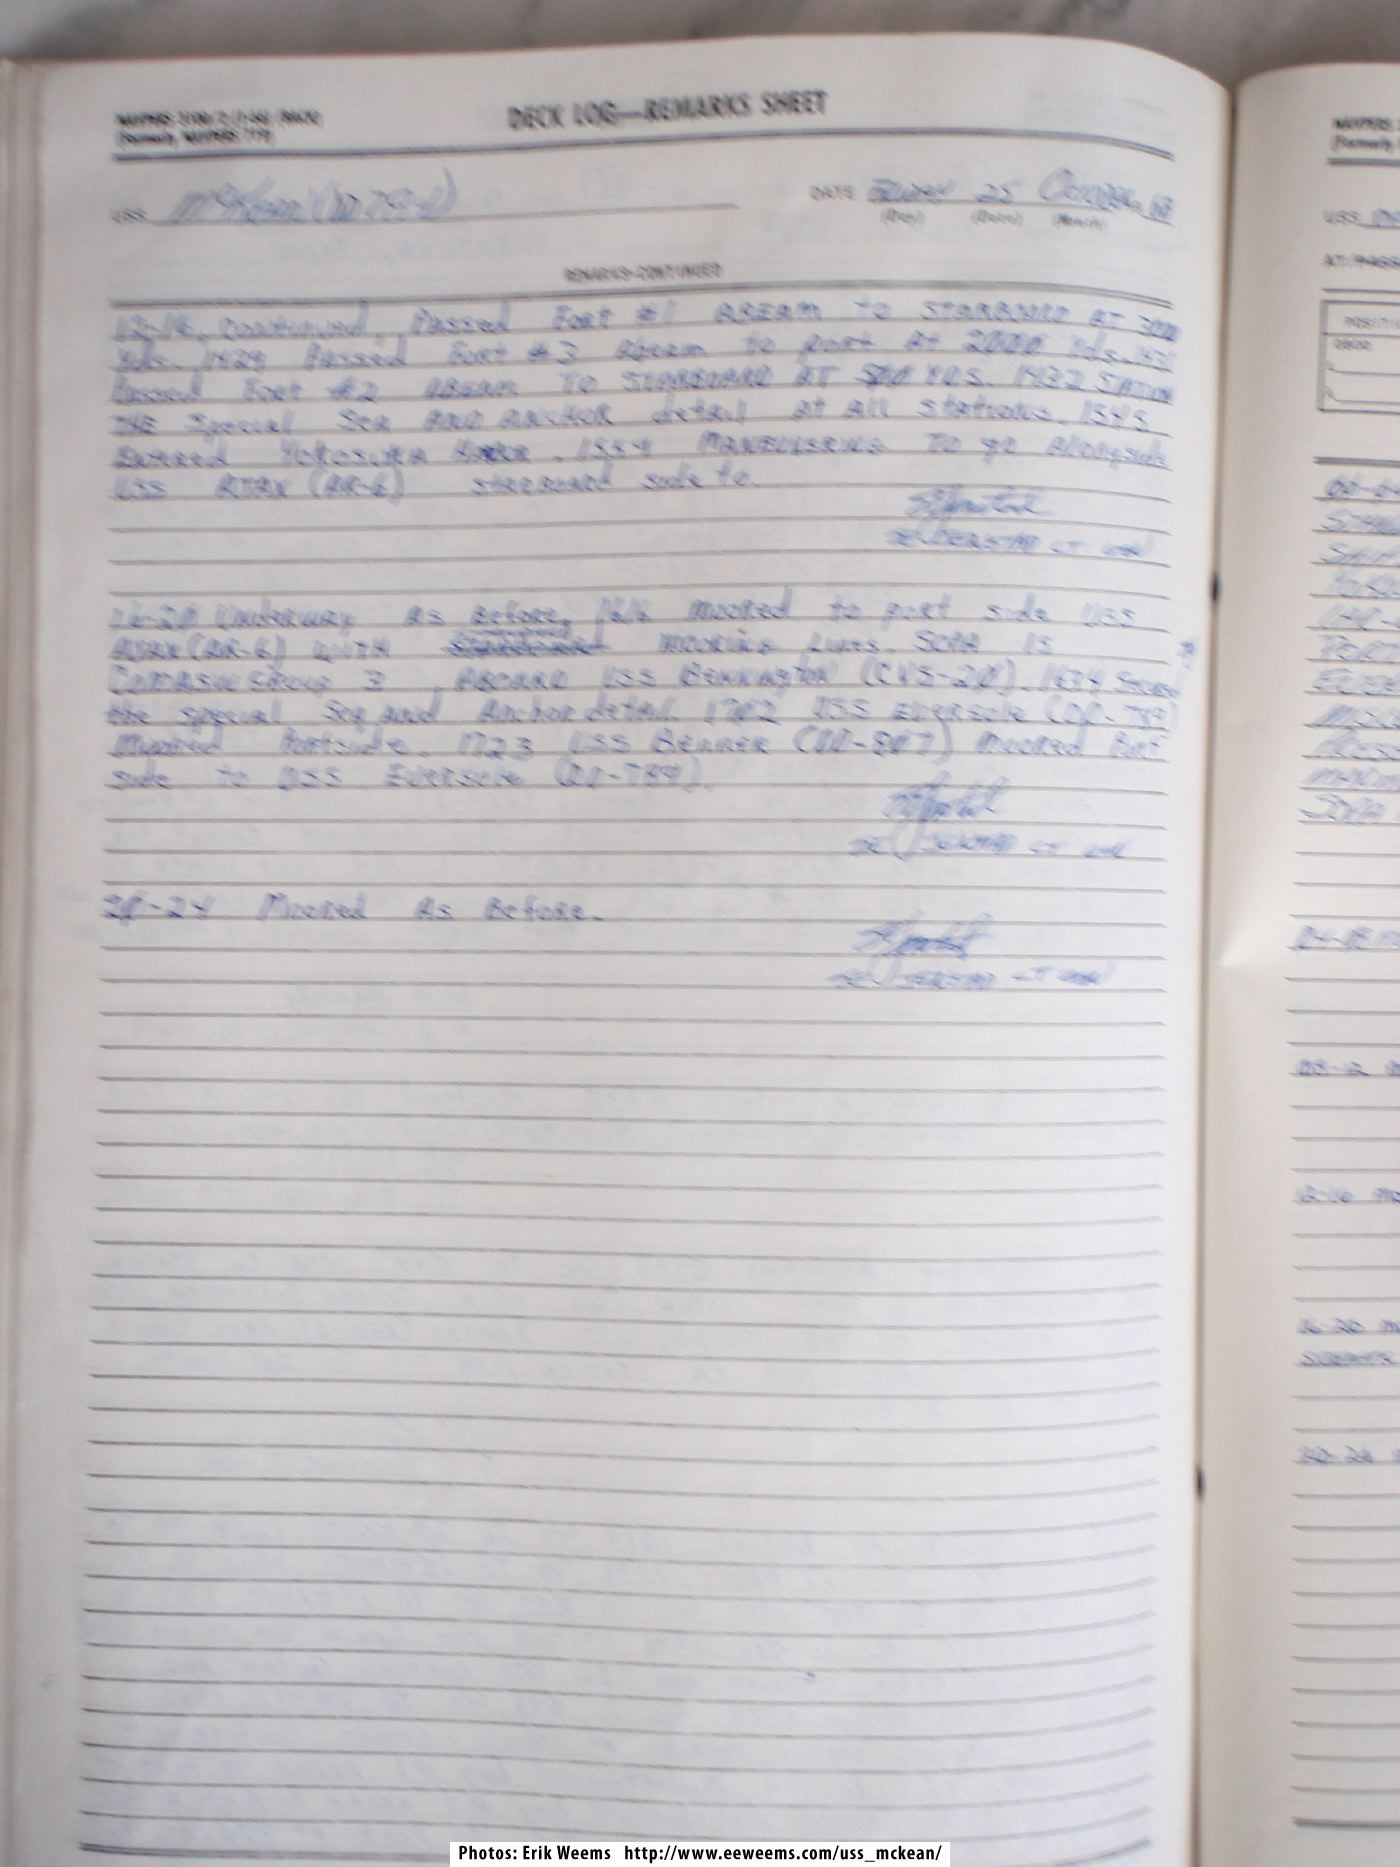 DECK LOG—REMARKS SHEET
USS McKean (DD 784) DATE FRIDAY 25 October 68
(Day) (Date) (Month)
REMARKS-CONTINUED
12-16, continued, Passed Fort #1 ABEAM to STARBOARD AT 3000
Yds. 1429 Passed Fort #3 Abeam to port At 2000 Yds. 1431
Passed Fort #2 ABEAM TO STARBOARD AT 500 YDS. 1432 Station
THE Special Sea AND ANCHOR detail At All Stations. 1545
Entered Yokosuka Harbor. 1554 MANEUVERING TO go Alongside
USS AJAX (AR-6) starboard side to.
LT USN
16-20 Underway As Before, 1616 moored to port side USS
AJAX (AR-6) WITH mooring Lines. SOPA IS
ComASWGroup 3, ABOARD USS Bennington (CVS-20). 1634 Secured
the special Sea and Anchor detail. 1702 USS Eversole (DD-789)
Moored Portside. 1723 USS Benner (DD-807) moored Port
side to USS Eversole (DD-789).
LT USN
20-24 Moored As Before.
LT USN
USS
POSIT
0800
04-08 m
08-12
12-16 mo
16-20 m
20-24
Photos: Erik Weems http://www.eeweems.com/uss_mckean/